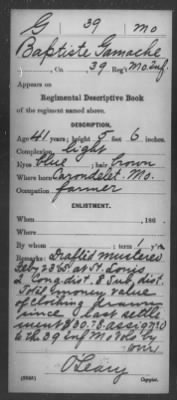 G 39 Mo
Baptiste Gamache
, Co. , 39 Reg't Mo. Inf.
Appears on
Regimental Descriptive Book
of the regiment named above.
DESCRIPTION.
Age 41 years; height 5 feet 6 inches.
Complexion light
Eyes blue ; hair brown
Where born Carondelet Mo.
Occupation farmer
ENLISTMENT.
When , 186 .
Where
By whom ; term 1 yrs.
Remarks: Drafted mustered
Feby 23 65 at St. Louis
2 Cong. dist. 2 Sub. dist.
Total money value
of clothing drawn
since last settle
ment $30.78 assigned
to the 39 Inf Mo Vols by
O'Leary
Copyist.